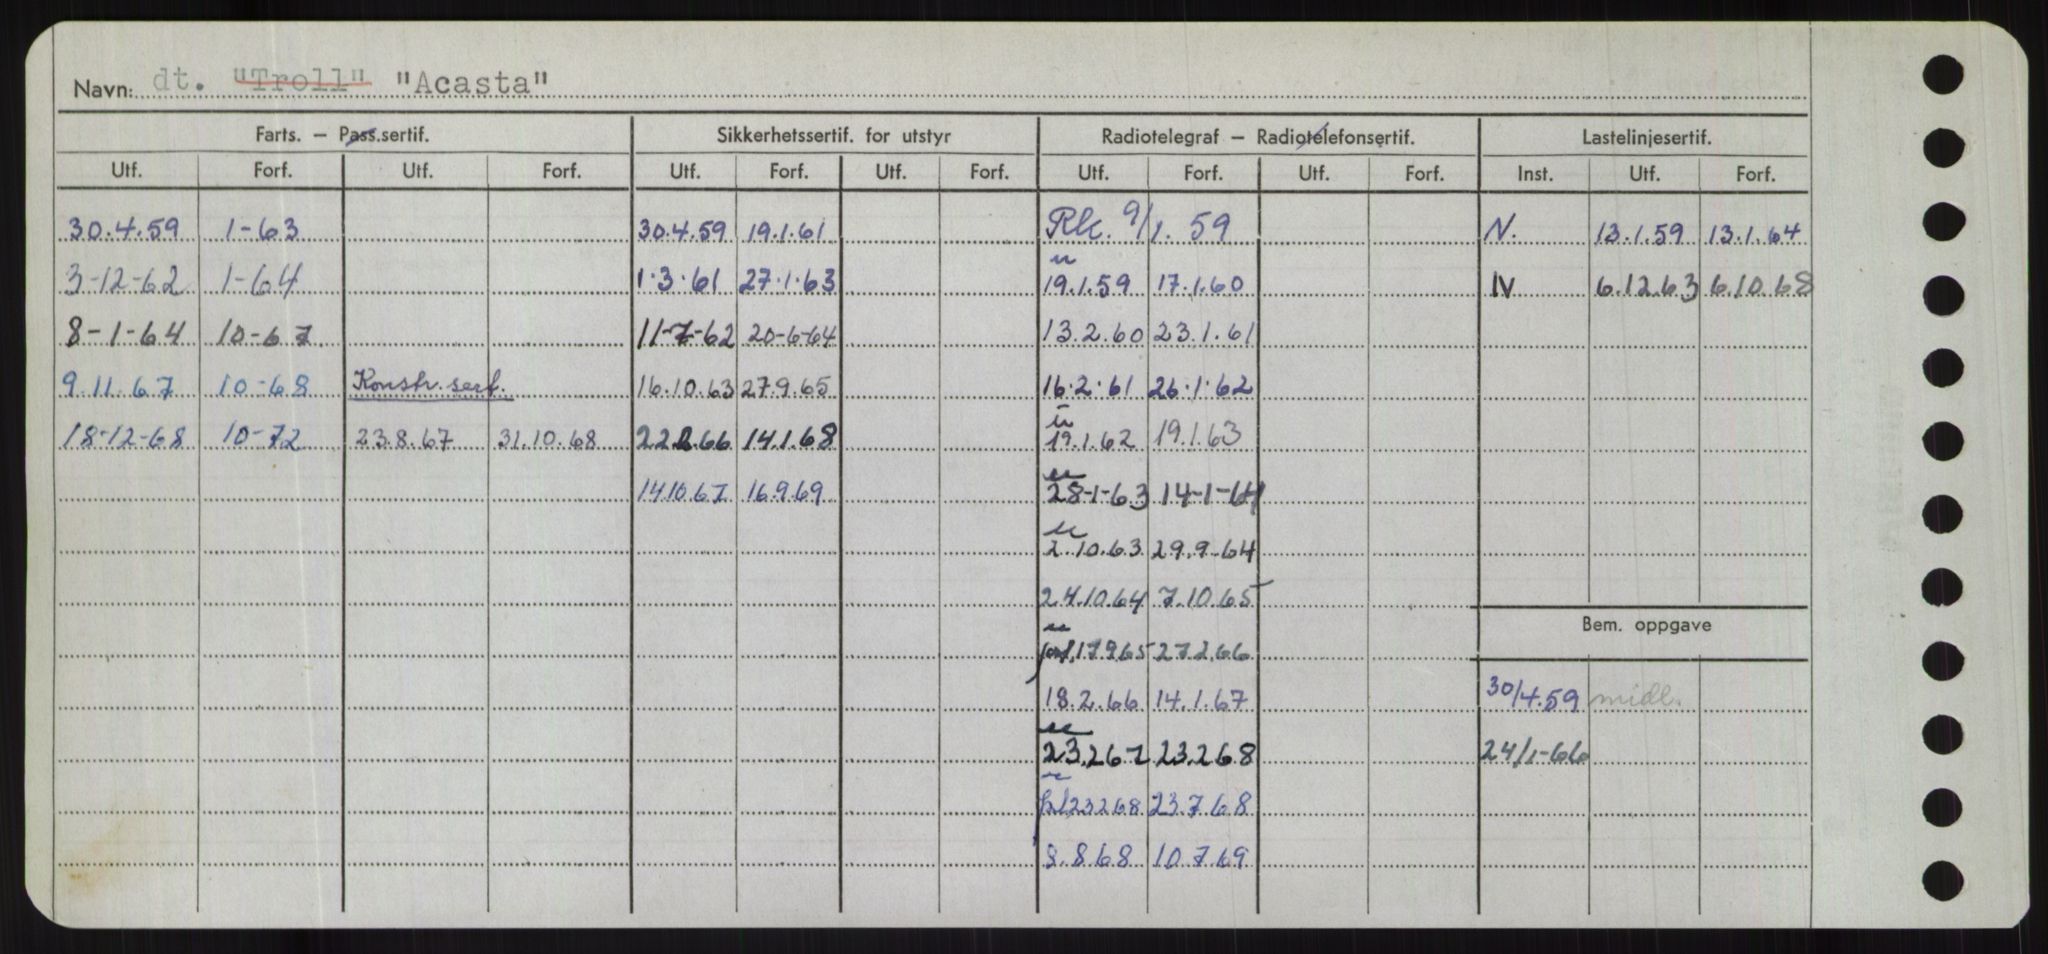 Navn: dt. "Troll" "Acasta"
Farts. – Pass.sertif. Sikkerhetssertif. for utstyr Radiotelegraf – Radiotelefonsertif. Lastelinjesertif.
Utf. Forf. Utf. Forf. Utf. Forf. Utf. Forf. Utf. Forf. Utf. Forf. Inst. Utf. Forf.
30.4.59 1-63 30.4.59 19.1.61 9/1.59 N. 13.1.59 13.1.64
3-12-62 1-64 1.3.61 27.1.63 19.1.59 17.1.60 IV 6.12.63 6.10.68
8-1-64 10-67 11-7-62 20-6-64 13.2.60 23.1.61
9.11.67 10-68 Konstr.sert. 16.10.63 27.9.65 16.2.61 26.1.62
18-12-68 10-72 23.8.67 31.10.68 22.2.66 14.1.68 19.1.62 19.1.63
14.10.67 16.9.69 28-1-63 14-1-64
2.10.63 29.9.64
24.10.64 7.10.65
Bem. oppgave
17.9.65 27.2.66
18.2.66 14.1.67 30/4.59 midl.
23.2.67 23.2.68 24/1-66
23.2.68 23.7.68
8.8.68 10.7.69